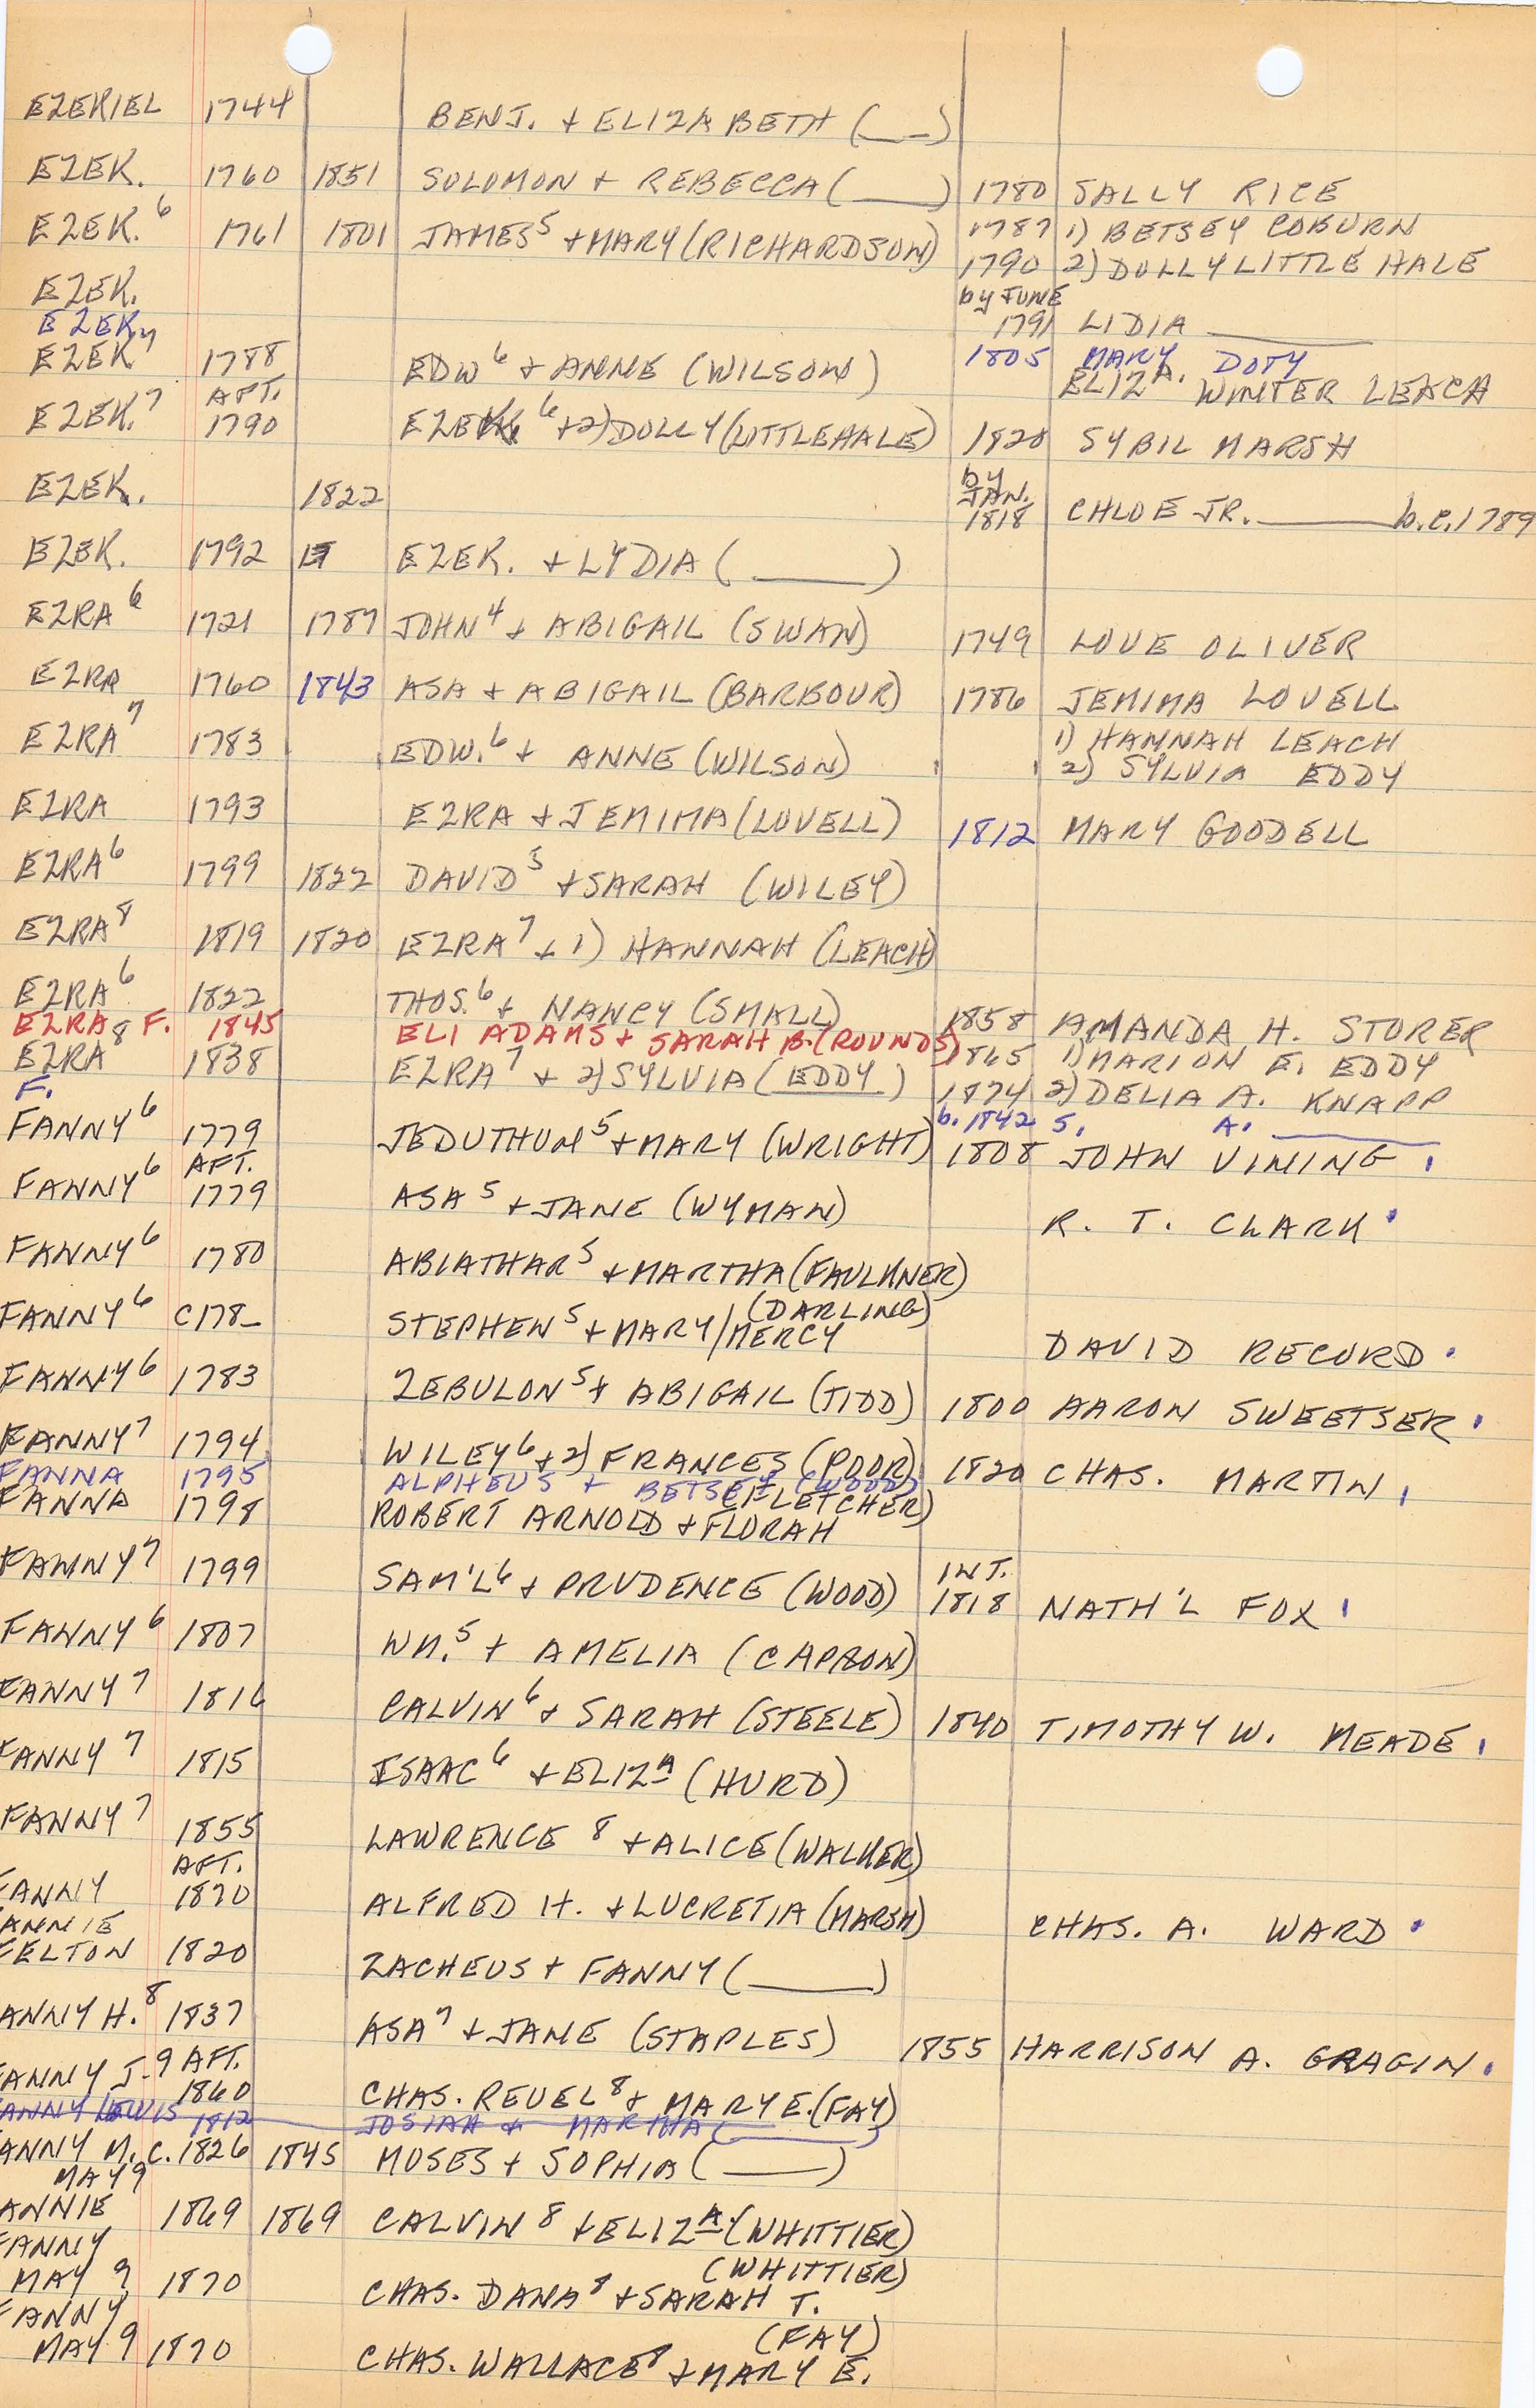 EZEKIEL 1744 BENJ. + ELIZABETH (___)
EZEK. 1760 1851 SOLOMON + REBECCA (___) 1780 SALLY RICE
EZEK.6 1761 1801 JAMES5 + MARY (RICHARDSON) 1787 1) BETSEY COBURN
1790 2) DOLLY LITTLE HALE
EZEK. by JUNE 1791 LIDIA ___
EZEK. 1805 MARY DOTY
EZEK7 1788 EDW6 + ANNE (WILSON) ELIZA. WINTER LEACH
EZEK.7 AFT. 1790 EZEK6 + 2) DOLLY (LITTLEHALE) 1820 SYBIL MARSH
EZEK. 1822 by JAN. 1818 CHLOE JR. ___ b.c.1789
EZEK. 1792 EZEK. + LYDIA (___)
EZRA6 1721 1787 JOHN4 + ABIGAIL (SWAN) 1749 LOVE OLIVER
EZRA 1760 1843 ASA + ABIGAIL (BARBOUR) 1786 JEMIMA LOVELL
EZRA7 1783 EDW.6 + ANNE (WILSON) 1) HANNAH LEACH
2) SYLVIA EDDY
EZRA 1793 EZRA + JEMIMA (LOVELL) 1812 MARY GOODELL
EZRA6 1799 1822 DAVID5 + SARAH (WILEY)
EZRA8 1819 1820 EZRA7 + 1) HANNAH (LEACH)
EZRA6 1822 THOS.6 + NANCY (SMALL) 1858 AMANDA H. STORER
EZRA F. 1845 ELI ADAMS + SARAH B. (ROUNDS)
EZRA8 F. 1838 EZRA7 + 2) SYLVIA (EDDY) 1865 1) MARION E. EDDY
1874 2) DELIA A. KNAPP
b. 1842 S. A. ___
FANNY6 1779 JEDUTHUN5 + MARY (WRIGHT) 1808 JOHN VINING
FANNY6 AFT. 1779 ASA5 + JANE (WYMAN) R. T. CLARK
FANNY6 1780 ABIATHAR5 + MARTHA (FAULKNER)
FANNY6 C178_ STEPHEN5 + MARY/MERCY (DARLING) DAVID RECORD
FANNY6 1783 ZEBULON5 + ABIGAIL (TIDD) 1800 AARON SWEETSER
FANNY7 1794 WILEY6 + 2) FRANCES (POOR) 1820 CHAS. MARTIN
FANNA 1795 ALPHEUS + BETSEY (WOOD)
FANNA 1798 ROBERT ARNOLD + FLORAH (FLETCHER)
FANNY7 1799 SAM'L6 + PRUDENCE (WOOD) INT. 1818 NATH'L FOX
FANNY6 1807 WM.5 + AMELIA (CAPRON)
FANNY7 1816 CALVIN6 + SARAH (STEELE) 1840 TIMOTHY W. MEADE
FANNY7 1815 ISAAC6 + ELIZA (HURD)
FANNY7 1855 LAWRENCE8 + ALICE (WALKER)
FANNY AFT. 1870 ALFRED H. + LUCRETIA (MARSH) CHAS. A. WARD
ANNIE
FELTON 1820 ZACHEUS + FANNY (___)
ANNY H.8 1837 ASA7 + JANE (STAPLES) 1855 HARRISON A. GRAGIN
ANNY J.9 AFT. 1860 CHAS. REUEL8 + MARY E. (FAY)
ANNY LEWIS 1812 JOSIAH & MARTHA (___)
ANNY M. c. 1826 1845 MOSES + SOPHIA (___)
MAY9
ANNIE 1869 1869 CALVIN8 + ELIZA (WHITTIER)
FANNY
MAY9 1870 CHAS. DANA8 + SARAH T. (WHITTIER)
FANNY
MAY9 1870 CHAS. WALLACE8 + MARY E. (FAY)